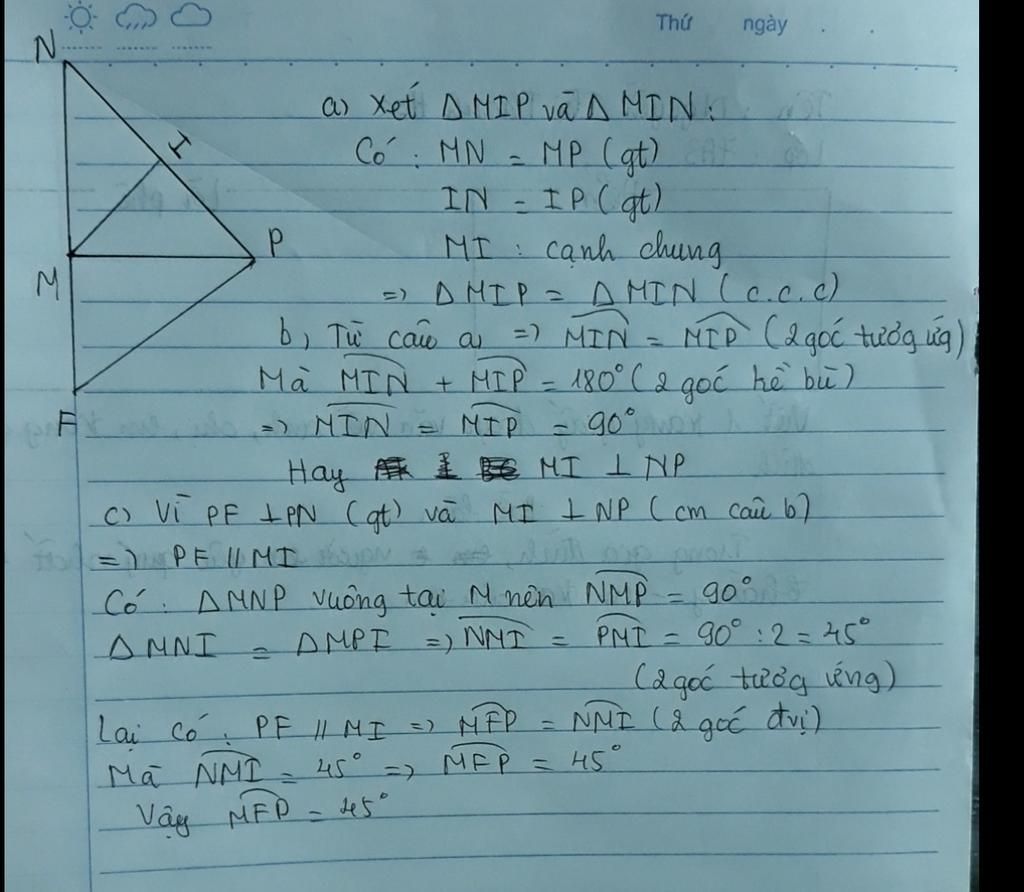 Thứ ngày . .
N
I
P
M
F
a) Xét ΔMIP và ΔMIN:
Có : MN = MP (gt)
IN = IP (gt)
MI : cạnh chung
=> ΔMIP = ΔMIN (c.c.c)
b, Từ câu a, => MIN = MIP (2 góc tương ứg)
Mà MIN + MIP = 180° (2 góc kề bù)
=> MIN = MIP = 90°
Hay MI ⊥ NP
c) Vì PF ⊥ PN (gt) và MI ⊥ NP (cm câu b)
=> PF // MI
Có : ΔMNP vuông tại M nên NMP = 90°
ΔMNI = ΔMPI => NMI = PMI = 90° : 2 = 45°
(2 góc tương ứng)
Lại có : PF // MI => MFP = NMI (2 góc đvị)
Mà NMI = 45° => MFP = 45°
Vậy MFP = 45°